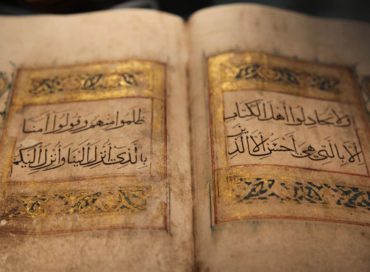 ولا تجادلوا أهل الكتاب
إلا بالتى هى أحسن إلا الذين
ظلموا منهم وقولوا آمنا
بالذى أنزل إلينا وأنزل إليكم